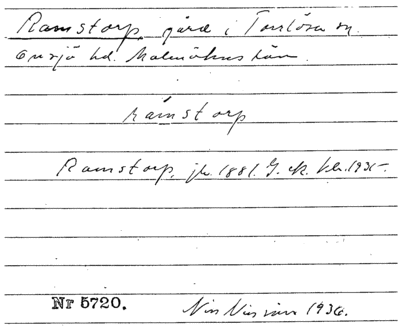 Ramstorp gård i Torrlösa sn.
Onsjö hd. Malmöhus län.
Ramstorp
Ramstorp, jb. 1881. G. ek. kbl. 1935.
Nr 5720.
1936.